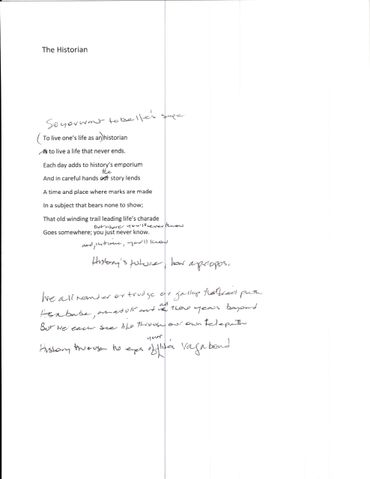 The Historian
So you want to be life's sage
(To live one's life as an) historian
to live a life that never ends.
Each day adds to history's emporium
the
And in careful hands story lends
A time and place where marks are made
In a subject that bears none to show;
That old winding trail leading life's charade
but where you'll never know
Goes somewhere; you just never know.
and, you'll know
History's future, how apropos.
We all or trudge or gallop that trail
and those years beyond
But we each see life through our own
your
History through the eyes of life's Vagabond